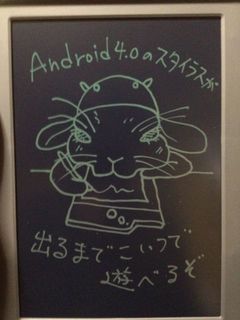 Android4.0のスタイラスが
出るまでこいつで
遊べるぞ